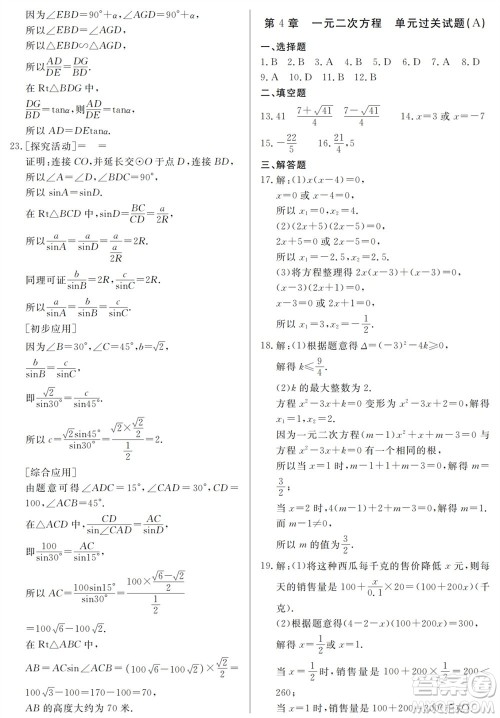 因为∠EBD=90°+α,
所以∠EBD=∠AGD,
所以△EBD∽△AGD,
所以 AD/DE=DG/BD.
在 Rt△BDG 中,
DG/BD=tanα,则AD/DE=tanα,
所以 AD=DEtanα.
23.[探究活动] = =
证明:连接 CO,并延长交⊙O于点 D,连接 BD,
所以∠A=∠D,
所以 sinA=sinD.
在 Rt△BCD 中,
所以 sinA=sinD=a/2R,
所以 a/sinA=a/(a/2R)=2R.
同理可证 b/sinB=c/sinC=2R,
所以 a/sinA=b/sinB=c/sinC.
[初步应用]
因为∠B=30°,∠C=45°,b=√2,
b/sinB=c/sinC,
即 √2/sin30°=c/sin45°,
所以 c=√2sin45°/sin30°=(√2×√2/2)/(1/2)=2.
[综合应用]
由题意可得∠ADC=15°,∠CAD=30°,
所以∠ACB=45°.
在△ACD 中,CD/sin∠CAD=AC/sin∠D,
即 100/sin30°=AC/sin15°,
所以 AC=100sin15°/sin30°=(100×(√6-√2)/4)/(1/2)
=100√6-100√2.
在 Rt△ABC 中,
AB=ACsin∠ACB=(100√6-100√2)×√2/2=
100√3-100.
AB 的高度大约为 100×1.732-100=73.2(m).
第 4 章 一元二次方程 单元过关试题(A)
一、选择题
9.A 10.D 11.D 12.A
二、填空题
13.41 (7+√41)/4 (7-√41)/4 14.x=4 或 x=-7
15.-22/5 16.21/4,5
三、解答题
17.解:(1)x(x-4)=0,
x=0 或 x-4=0,
所以 x₁=0,x₂=4.
(2)(2x+5)(2x-5)=0,
2x+5=0 或 2x-5=0,
所以 x₁=-2.5,x₂=2.5.
所以 x₁=3,
18.解:(1)根据题意得 Δ=(-3)²-4k≥0,
解得 k≤9/4.
(2)k 的最大整数为 2,
方程 x²-3x+k=0 变形为 x²-3x+2=0,
解得 x₁=1,x₂=2.
因为一元二次方程(m-1)x²+x+m-3=0 与
方程 x²-3x+k=0 有一个相同的根,
所以当 x=1 时,m-1+1+m-3=0,解得 m=
3/2;
当 x=2 时,4(m-1)+2+m-3=0,解得 m=1,
而 m-1≠0,
所以 m 的值为 3/2.
19.解:(1)将这种西瓜每千克的售价降低 x 元,则每
天的销售量是 100+x/0.1×20=(100+200x)(千
克).
(2)根据题意得(4-2-x)(100+200x)=300,
解得 x=1/2 或 x=1.
当 x=1/2 时,销售量是 100+200×1/2=200<
260;